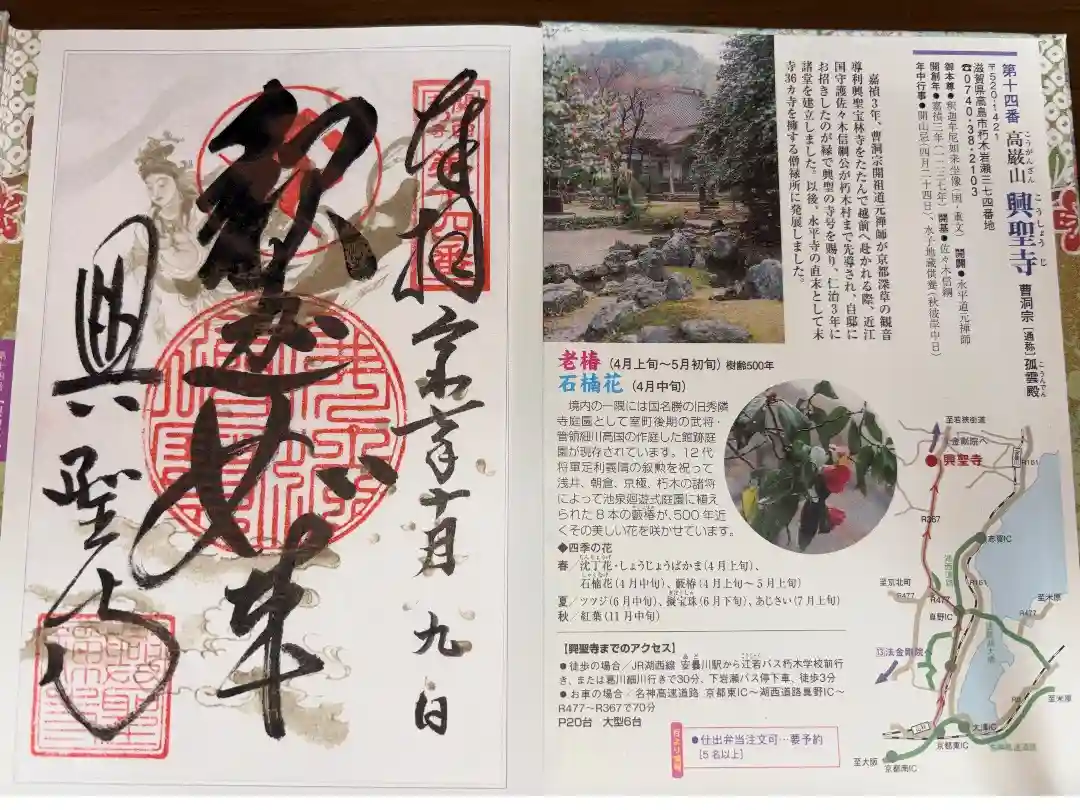 奉拝
十月 九日
釈迦如来
興聖寺
第十四番 高巌山 興聖寺 曹洞宗 [通称]孤雲殿
こうがんざん こうしょうじ こうんでん
〒520-1421
滋賀県高島市朽木岩瀬三七四番地
☎0740・38・2103
御本尊●釈迦牟尼如来坐像(国・重文) 開闢●永平道元禅師
開創年●嘉禎三年(一二三七年) 開基●佐々木信綱
年中行事●開山忌(四月二十四日)、水子地蔵供養(秋彼岸中日)
嘉禎3年、曹洞宗開祖道元禅師が京都深草の観音
導利興聖宝林寺をたたんで越前へ赴かれる際、近江
国守護佐々木信綱公が朽木村まで先導され、自邸に
お招きしたのが縁で興聖の寺号を賜り、仁治3年に
諸堂を建立しました。以後、永平寺の直末として末
寺36カ寺を擁する僧禄所に発展しました。
老椿(4月上旬〜5月初旬)樹齢500年
石楠花(4月中旬)
境内の一隅には国名勝の旧秀隣
寺庭園として室町後期の武将・
管領細川高国の作庭した館跡庭
園が現存されています。12代
将軍足利義晴の叙勲を祝って
浅井、朝倉、京極、朽木の諸将
によって池泉廻遊式庭園に植え
られた8本の藪椿が、500年近
くその美しい花を咲かせています。
◆四季の花
春/沈丁花・しょうじょうばかま(4月上旬)、
石楠花(4月中旬)、藪椿(4月上旬〜5月上旬)
夏/ツツジ(6月中旬)、擬宝珠(6月下旬)、あじさい(7月上旬)
秋/紅葉(11月中旬)
【興聖寺までのアクセス】
●徒歩の場合/JR湖西線 安曇川駅から江若バス朽木学校前行
き、または葛川細川行きで30分、下岩瀬バス停下車、徒歩3分
●お車の場合/名神高速道路 京都東IC〜湖西道路真野IC〜
R477〜R367で70分
P20台 大型6台
寺より情報
●仕出弁当注文可…要予約
[5名以上]
至若狭街道
金剛院へ
興聖寺
R161
R367
志賀IC
湖西道路
至京北町
R477
R161
R477
R477
至米原
真野IC
⑬法金剛院へ
至米原
大津IC
京都東IC
名神高速道路
至大阪
京都南IC